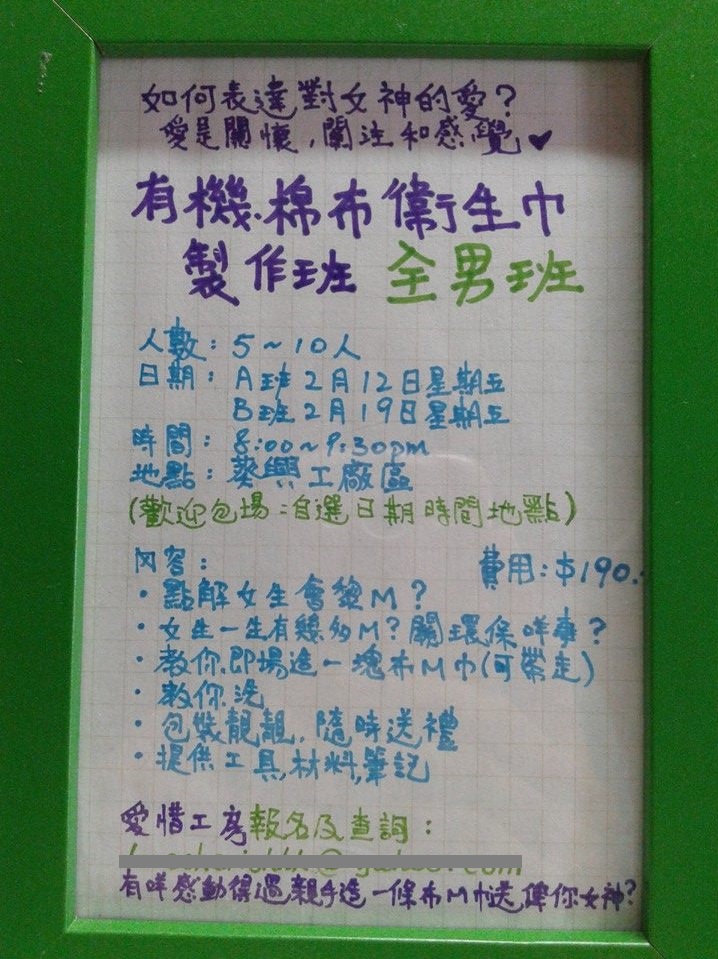 如何表達對女神的愛?
愛是關懷,關注和感覺♥
有機棉布衛生巾
製作班 全男班
人數: 5~10人
日期: A班2月12日星期五
B班2月19日星期五
時間: 8:00~9:30pm
地點: 葵興工廠區
(歡迎包場:自選日期時間地點)
內容: 費用:$190.
·點解女生會嚟M?
·女生一生有幾多M?關環保咩事?
·教你即場造一塊布M巾(可帶走)
·教你洗
·包裝靚靚,隨時送禮
·提供工具,材料,筆記
愛惜工房報名及查詢:
有咩感動得過親手造一條布M巾送俾你女神?